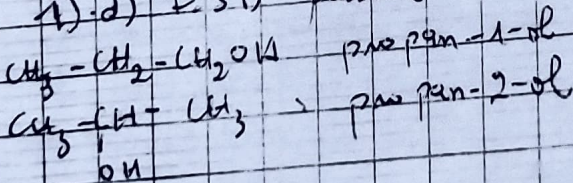 1).d)
CH3-CH2-CH2OH propan-1-ol
CH3-CH-CH3, propan-2-ol
OH